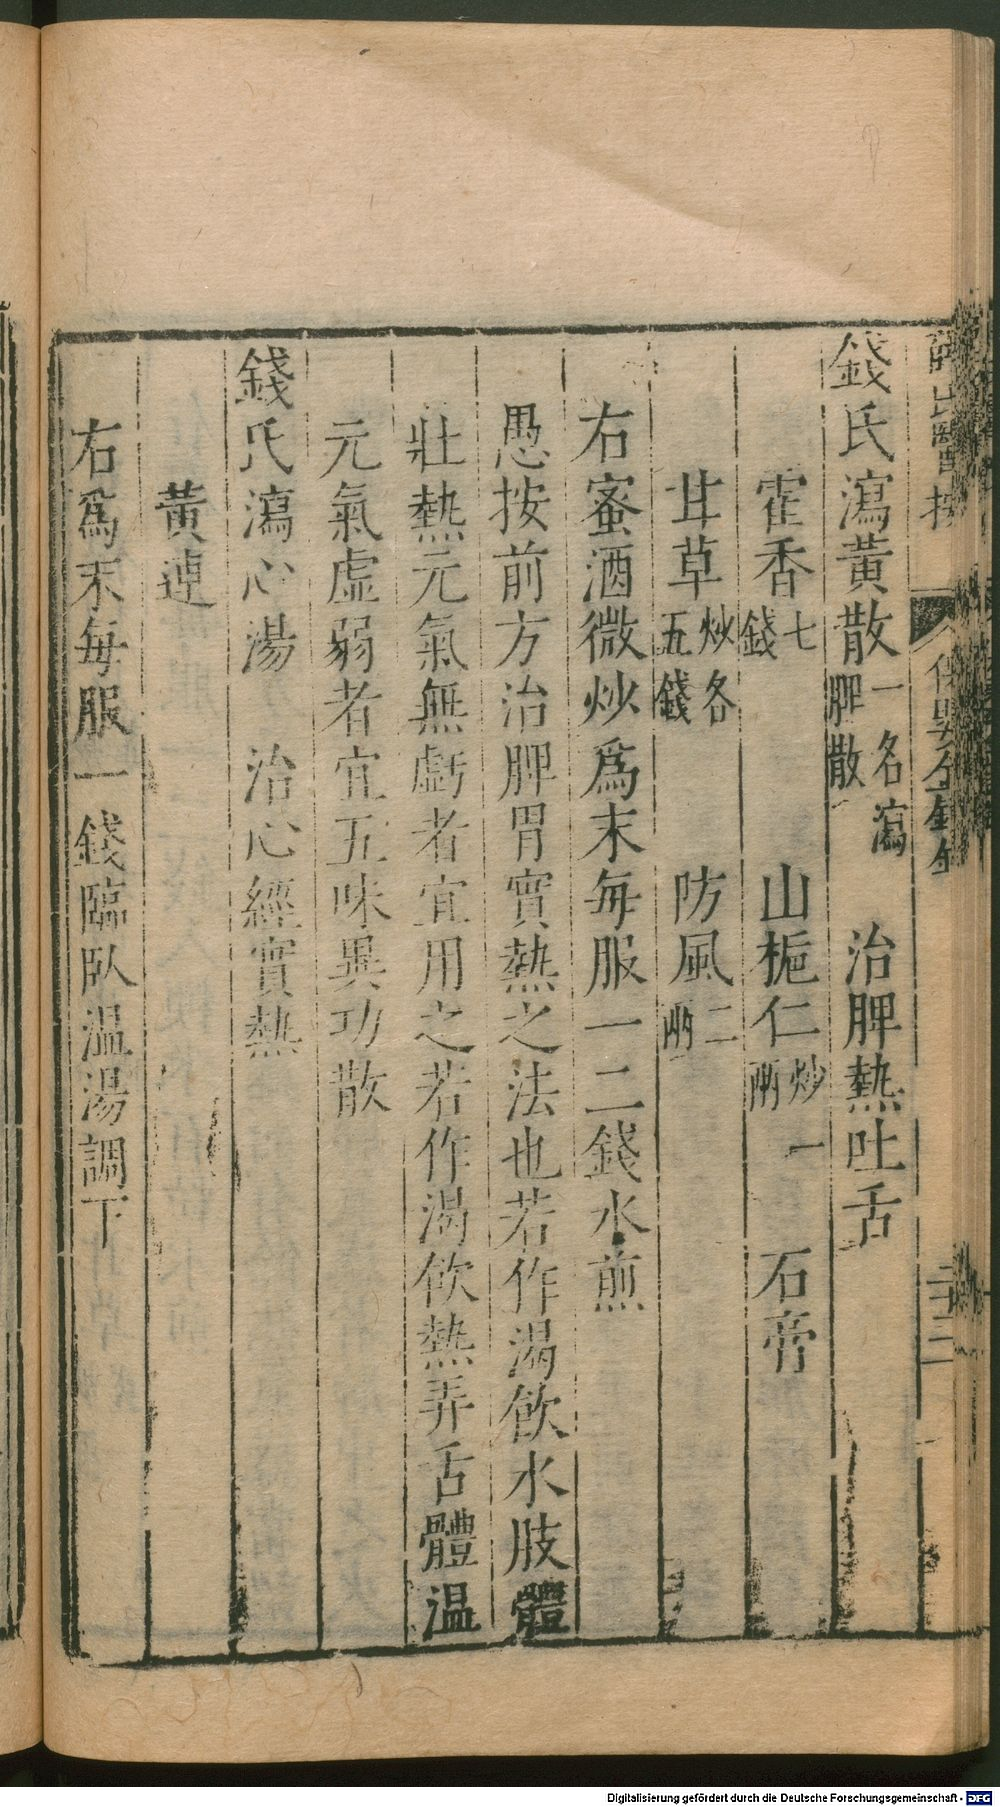 薛氏醫按 保嬰金鏡錄 二十三
錢氏瀉黃散一名瀉脾散 治脾熱吐舌
霍香七錢 山梔仁炒一兩 石膏
甘草炒各五錢 防風二兩
右蜜酒微炒爲末每服一二錢水煎
愚按前方治脾胃實熱之法也若作渴飲水肢體
壯熱元氣無虧者宜用之若作渴飲熱弄舌體温
元氣虛弱者宜五味異功散
錢氏瀉心湯 治心經實熱
黃連
右爲末每服一錢臨臥温湯調下
Digitalisierung gefördert durch die Deutsche Forschungsgemeinschaft - DFG